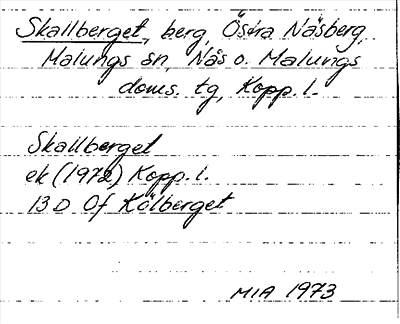 Skallberget, berg, Östra Näsberg,
Malungs sn, Nås o. Malungs
doms. tg, Kopp. l.
Skallberget
ek (1972) Kopp. l.
13 D 0f Kölberget
MIA 1973